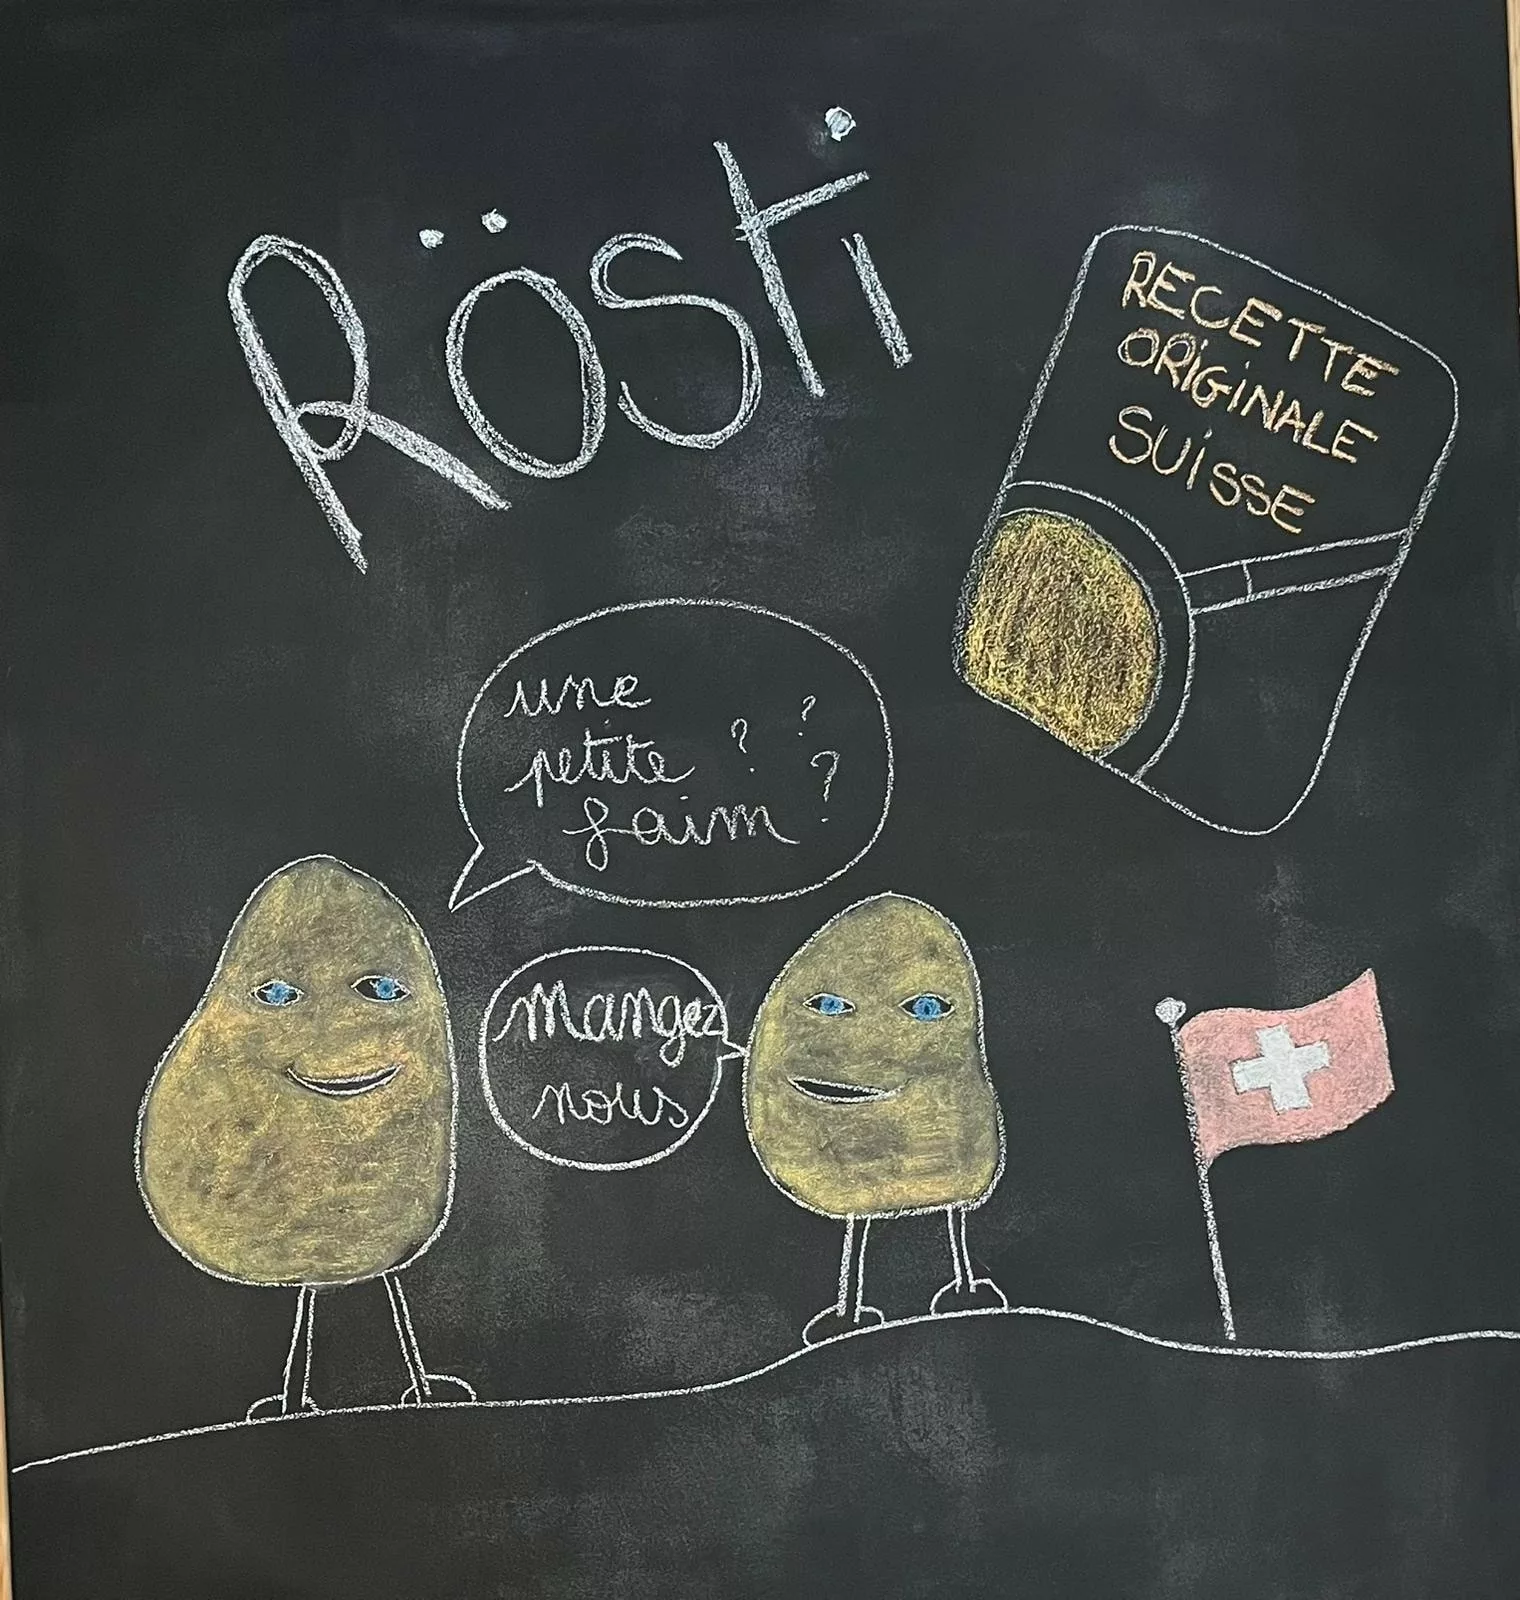 Rösti
RECETTE
ORiGiNALE
SUiSSE
une
petite ? ?
faim ?
Mangez
nous